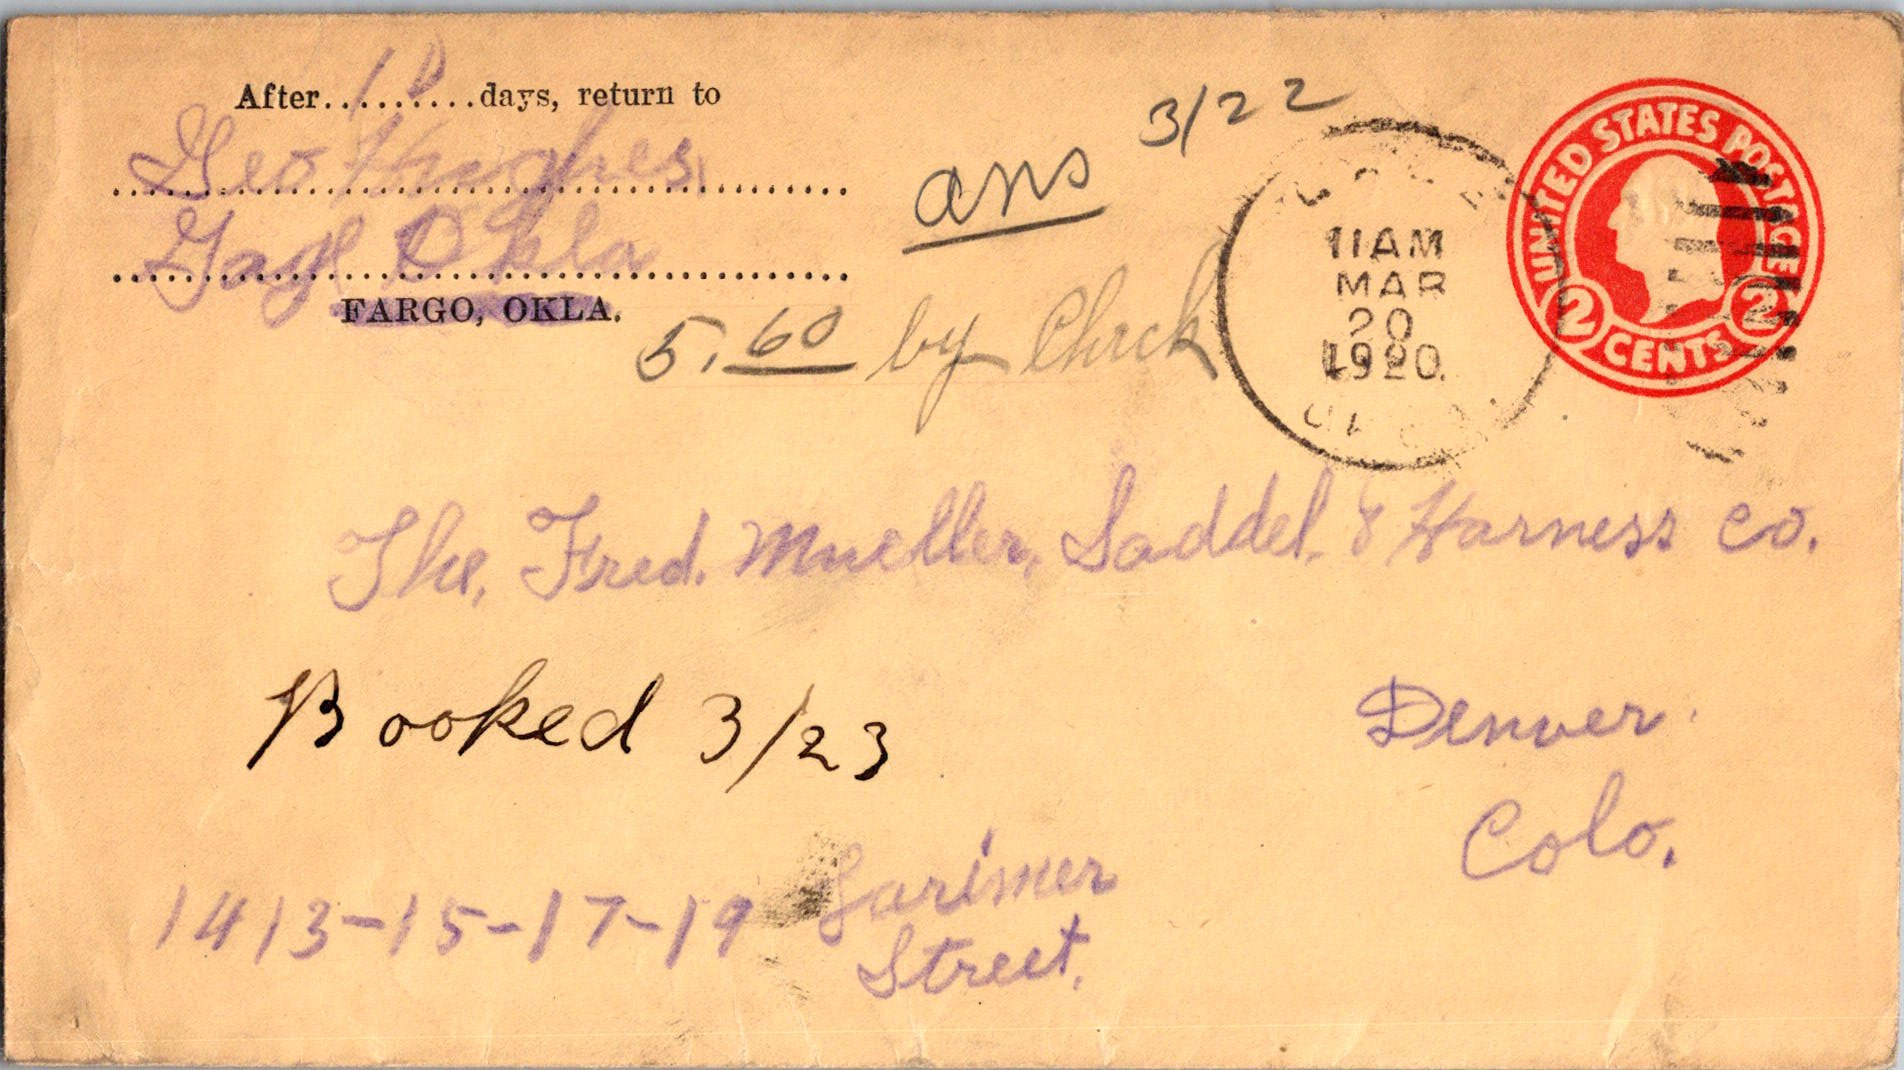 After..........days, return to
10
Geo Hughes.
Gage Okla
FARGO, OKLA.
ans 3/22
5.60 by Check
11 AM
MAR
20
1920.
OKLA.
UNITED STATES POSTAGE
2 CENTS 2
The, Fred. Mueller, Saddel. & Harness Co.
Booked 3/23
Denver.
Colo.
1413-15-17-19 Larimer
Street.